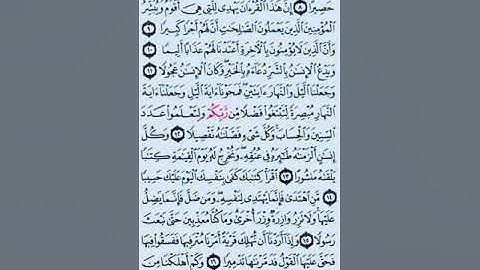 حَصِيرًا ۝٨ إِنَّ هَٰذَا ٱلْقُرْءَانَ يَهْدِى لِلَّتِى هِىَ أَقْوَمُ وَيُبَشِّرُ
ٱلْمُؤْمِنِينَ ٱلَّذِينَ يَعْمَلُونَ ٱلصَّٰلِحَٰتِ أَنَّ لَهُمْ أَجْرًا كَبِيرًا ۝٩
وَأَنَّ ٱلَّذِينَ لَا يُؤْمِنُونَ بِٱلْءَاخِرَةِ أَعْتَدْنَا لَهُمْ عَذَابًا أَلِيمًا ۝١٠
وَيَدْعُ ٱلْإِنسَٰنُ بِٱلشَّرِّ دُعَآءَهُۥ بِٱلْخَيْرِ وَكَانَ ٱلْإِنسَٰنُ عَجُولًا ۝١١
وَجَعَلْنَا ٱلَّيْلَ وَٱلنَّهَارَ ءَايَتَيْنِ فَمَحَوْنَآ ءَايَةَ ٱلَّيْلِ وَجَعَلْنَآ ءَايَةَ
ٱلنَّهَارِ مُبْصِرَةً لِّتَبْتَغُوا۟ فَضْلًا مِّن رَّبِّكُمْ وَلِتَعْلَمُوا۟ عَدَدَ
ٱلسِّنِينَ وَٱلْحِسَابَ وَكُلَّ شَىْءٍ فَصَّلْنَٰهُ تَفْصِيلًا ۝١٢ وَكُلَّ
إِنسَٰنٍ أَلْزَمْنَٰهُ طَٰٓئِرَهُۥ فِى عُنُقِهِۦ وَنُخْرِجُ لَهُۥ يَوْمَ ٱلْقِيَٰمَةِ كِتَٰبًا
يَلْقَىٰهُ مَنشُورًا ۝١٣ ٱقْرَأْ كِتَٰبَكَ كَفَىٰ بِنَفْسِكَ ٱلْيَوْمَ عَلَيْكَ حَسِيبًا
۝١٤ مَّنِ ٱهْتَدَىٰ فَإِنَّمَا يَهْتَدِى لِنَفْسِهِۦ وَمَن ضَلَّ فَإِنَّمَا يَضِلُّ
عَلَيْهَا وَلَا تَزِرُ وَازِرَةٌ وِزْرَ أُخْرَىٰ وَمَا كُنَّا مُعَذِّبِينَ حَتَّىٰ نَبْعَثَ
رَسُولًا ۝١٥ وَإِذَآ أَرَدْنَآ أَن نُّهْلِكَ قَرْيَةً أَمَرْنَا مُتْرَفِيهَا فَفَسَقُوا۟ فِيهَا
فَحَقَّ عَلَيْهَا ٱلْقَوْلُ فَدَمَّرْنَٰهَا تَدْمِيرًا ۝١٦ وَكَمْ أَهْلَكْنَا مِنَ